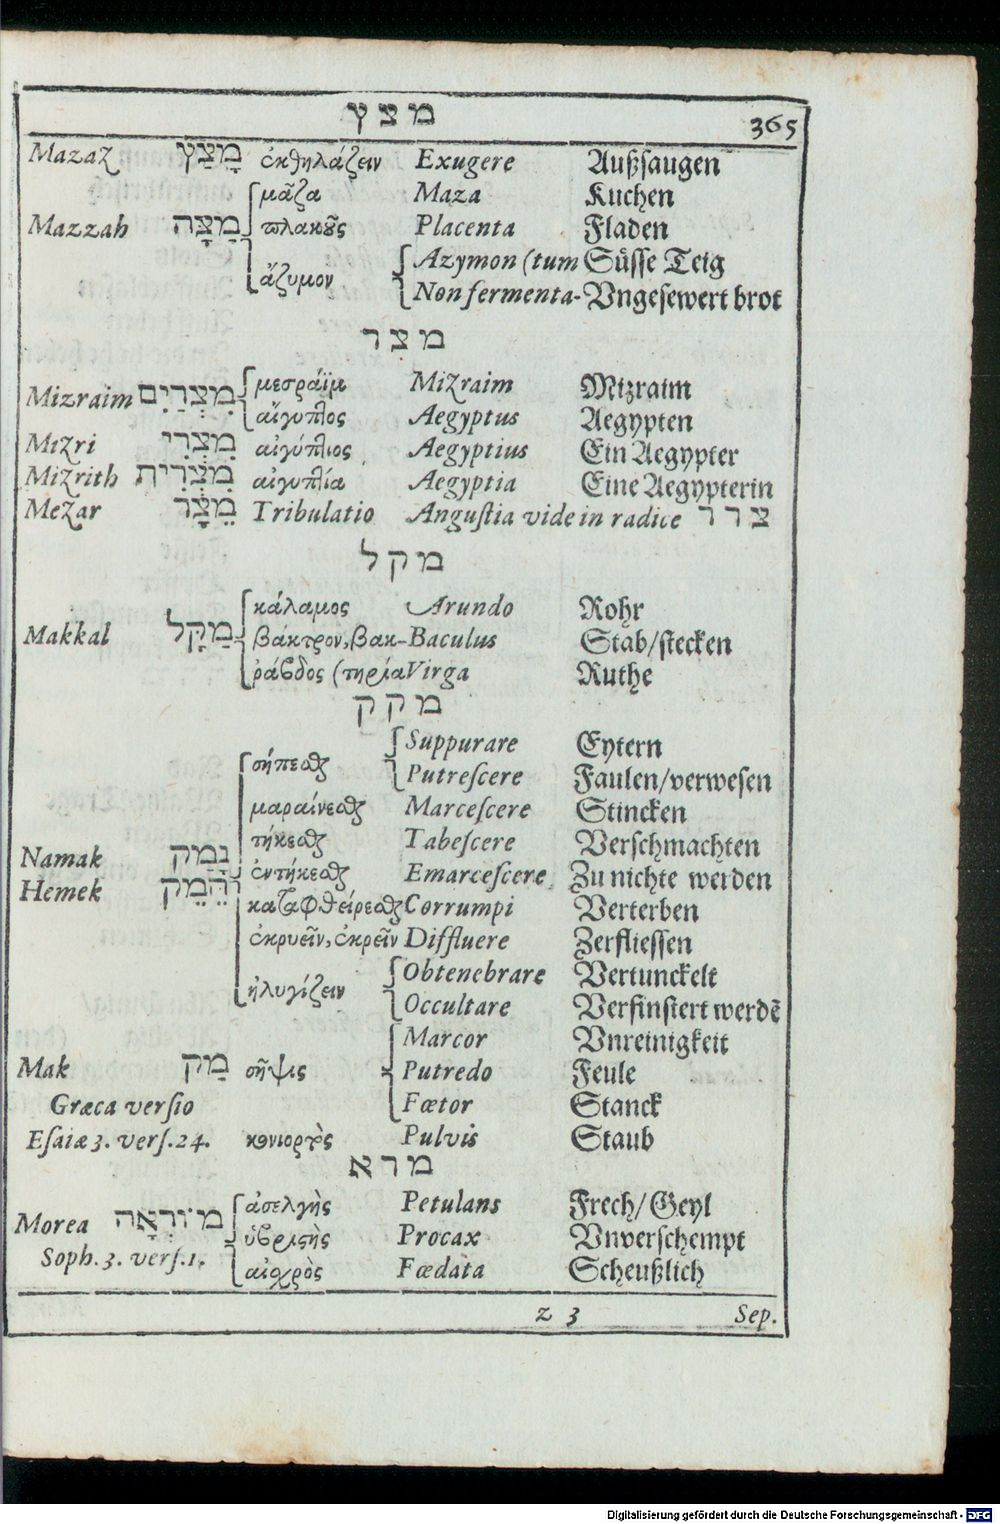 מצץ 365
Mazaz מָצַץ ἐκθηλάζειν Exugere Außsaugen
μᾶζα Maza Kuchen
Mazzah מַצָּה πλακοῦς Placenta Fladen
ἄζυμον Azymon (tum Süsse Teig
Non fermenta- Vngesewert brot
מצר
Mizraim מִצְרַיִם μεσράϊμ Mizraim Mizraim
αἴγυπτος Aegyptus Aegypten
Mizri מִצְרִי αἰγύπτιος Aegyptius Ein Aegypter
Mizrith מִצְרִית αἰγυπτία Aegyptia Eine Aegypterin
Mezar מֵצָר Tribulatio Angustia vide in radice צרר
מקל
κάλαμος Arundo Rohr
Makkal מַקָּל βάκτρον, βακ- Baculus Stab/stecken
ῥάβδος (τηρία Virga Ruthe
מקק
σήπεσθαι Suppurare Eytern
Putrescere Faulen/verwesen
μαραίνεσθαι Marcescere Stincken
τήκεσθαι Tabescere Verschmachten
Namak נָמַק ἐντήκεσθαι Emarcescere Zu nichte werden
Hemek הֵמֵק καταφθείρεσθαι Corrumpi Verterben
ἐκρυεῖν, ἐκρεῖν Diffluere Zerfliessen
ἠλυγίζειν Obtenebrare Vertunckelt
Occultare Verfinstert werdē
Marcor Vnreinigkeit
Mak מַק σῆψις Putredo Feule
Græca versio Fœtor Stanck
Esaiæ 3. vers. 24. κονιορτὸς Pulvis Staub
מרא
ἀσελγὴς Petulans Frech/Geyl
Morea מוֹרְאָה ὑβριστὴς Procax Vnverschempt
Soph. 3. vers. 1. αἰσχρὸς Fœdata Scheußlich
z 3 Sep.
Digitalisierung gefördert durch die Deutsche Forschungsgemeinschaft - DFG